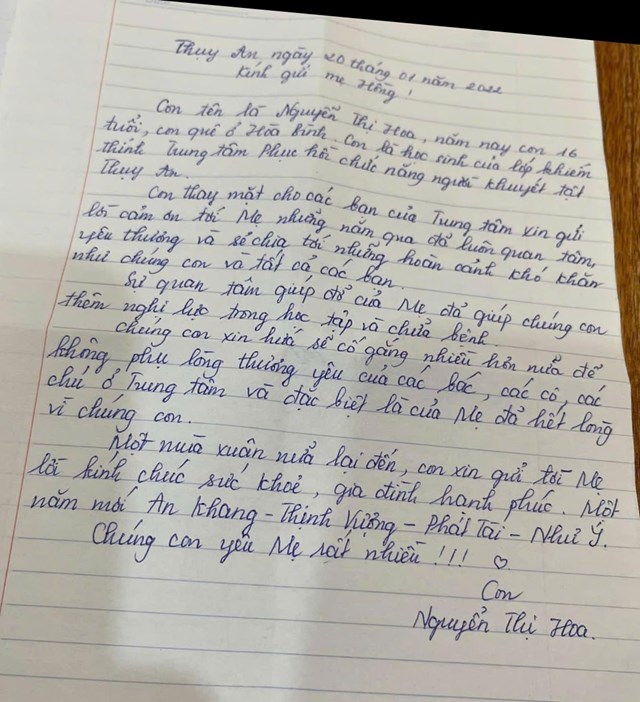 Thụy An, ngày 20 tháng 01 năm 2022
Kính gửi mẹ Hồng!
Con tên là Nguyễn Thị Hoa, năm nay con 16
tuổi, con quê ở Hòa Bình. Con là học sinh của lớp khiếm
thính Trung tâm Phục hồi chức năng người khuyết tật
Thụy An.
Con thay mặt cho các bạn của Trung tâm xin gửi
lời cảm ơn tới Mẹ những năm qua đã luôn quan tâm,
yêu thương và sẻ chia tới những hoàn cảnh khó khăn
như chúng con và tất cả các bạn.
Sự quan tâm giúp đỡ của Mẹ đã giúp chúng con
thêm nghị lực trong học tập và chữa bệnh.
chúng con xin hứa sẽ cố gắng nhiều hơn nữa để
không phụ lòng thương yêu của các bác, các cô, các
chú ở Trung tâm và đặc biệt là của Mẹ đã hết lòng
vì chúng con.
Một mùa xuân nữa lại đến, con xin gửi tới Mẹ
lời kính chúc sức khoẻ, gia đình hạnh phúc. Một
năm mới An Khang - Thịnh Vượng - Phát Tài - Như Ý.
Chúng con yêu Mẹ rất nhiều!!! ♡
Con
Nguyễn Thị Hoa.